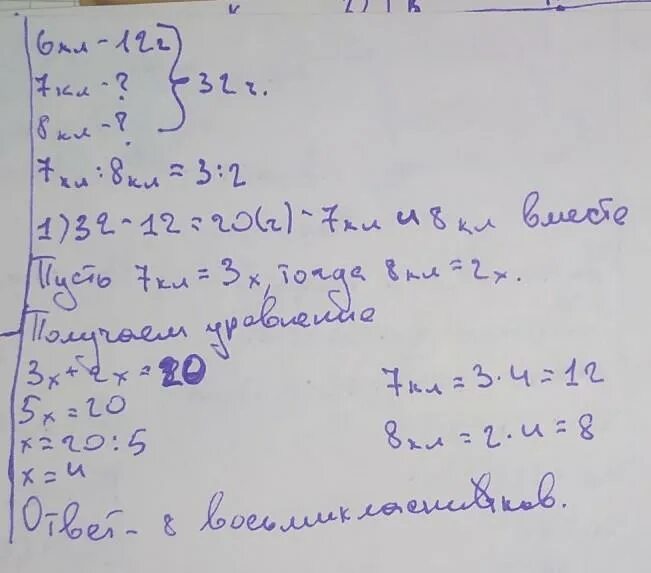 6кл-12ч
7кл-? } 32ч.
8кл-?
7кл:8кл=3:2
1)32-12=20(ч)-7кл и 8кл вместе
Пусть 7кл=3х, тогда 8кл=2х.
Получаем уравнение
3х+2х=20
5х=20
х=20:5
х=4
7кл=3·4=12
8кл=2·4=8
Ответ-8 восьмикласников.